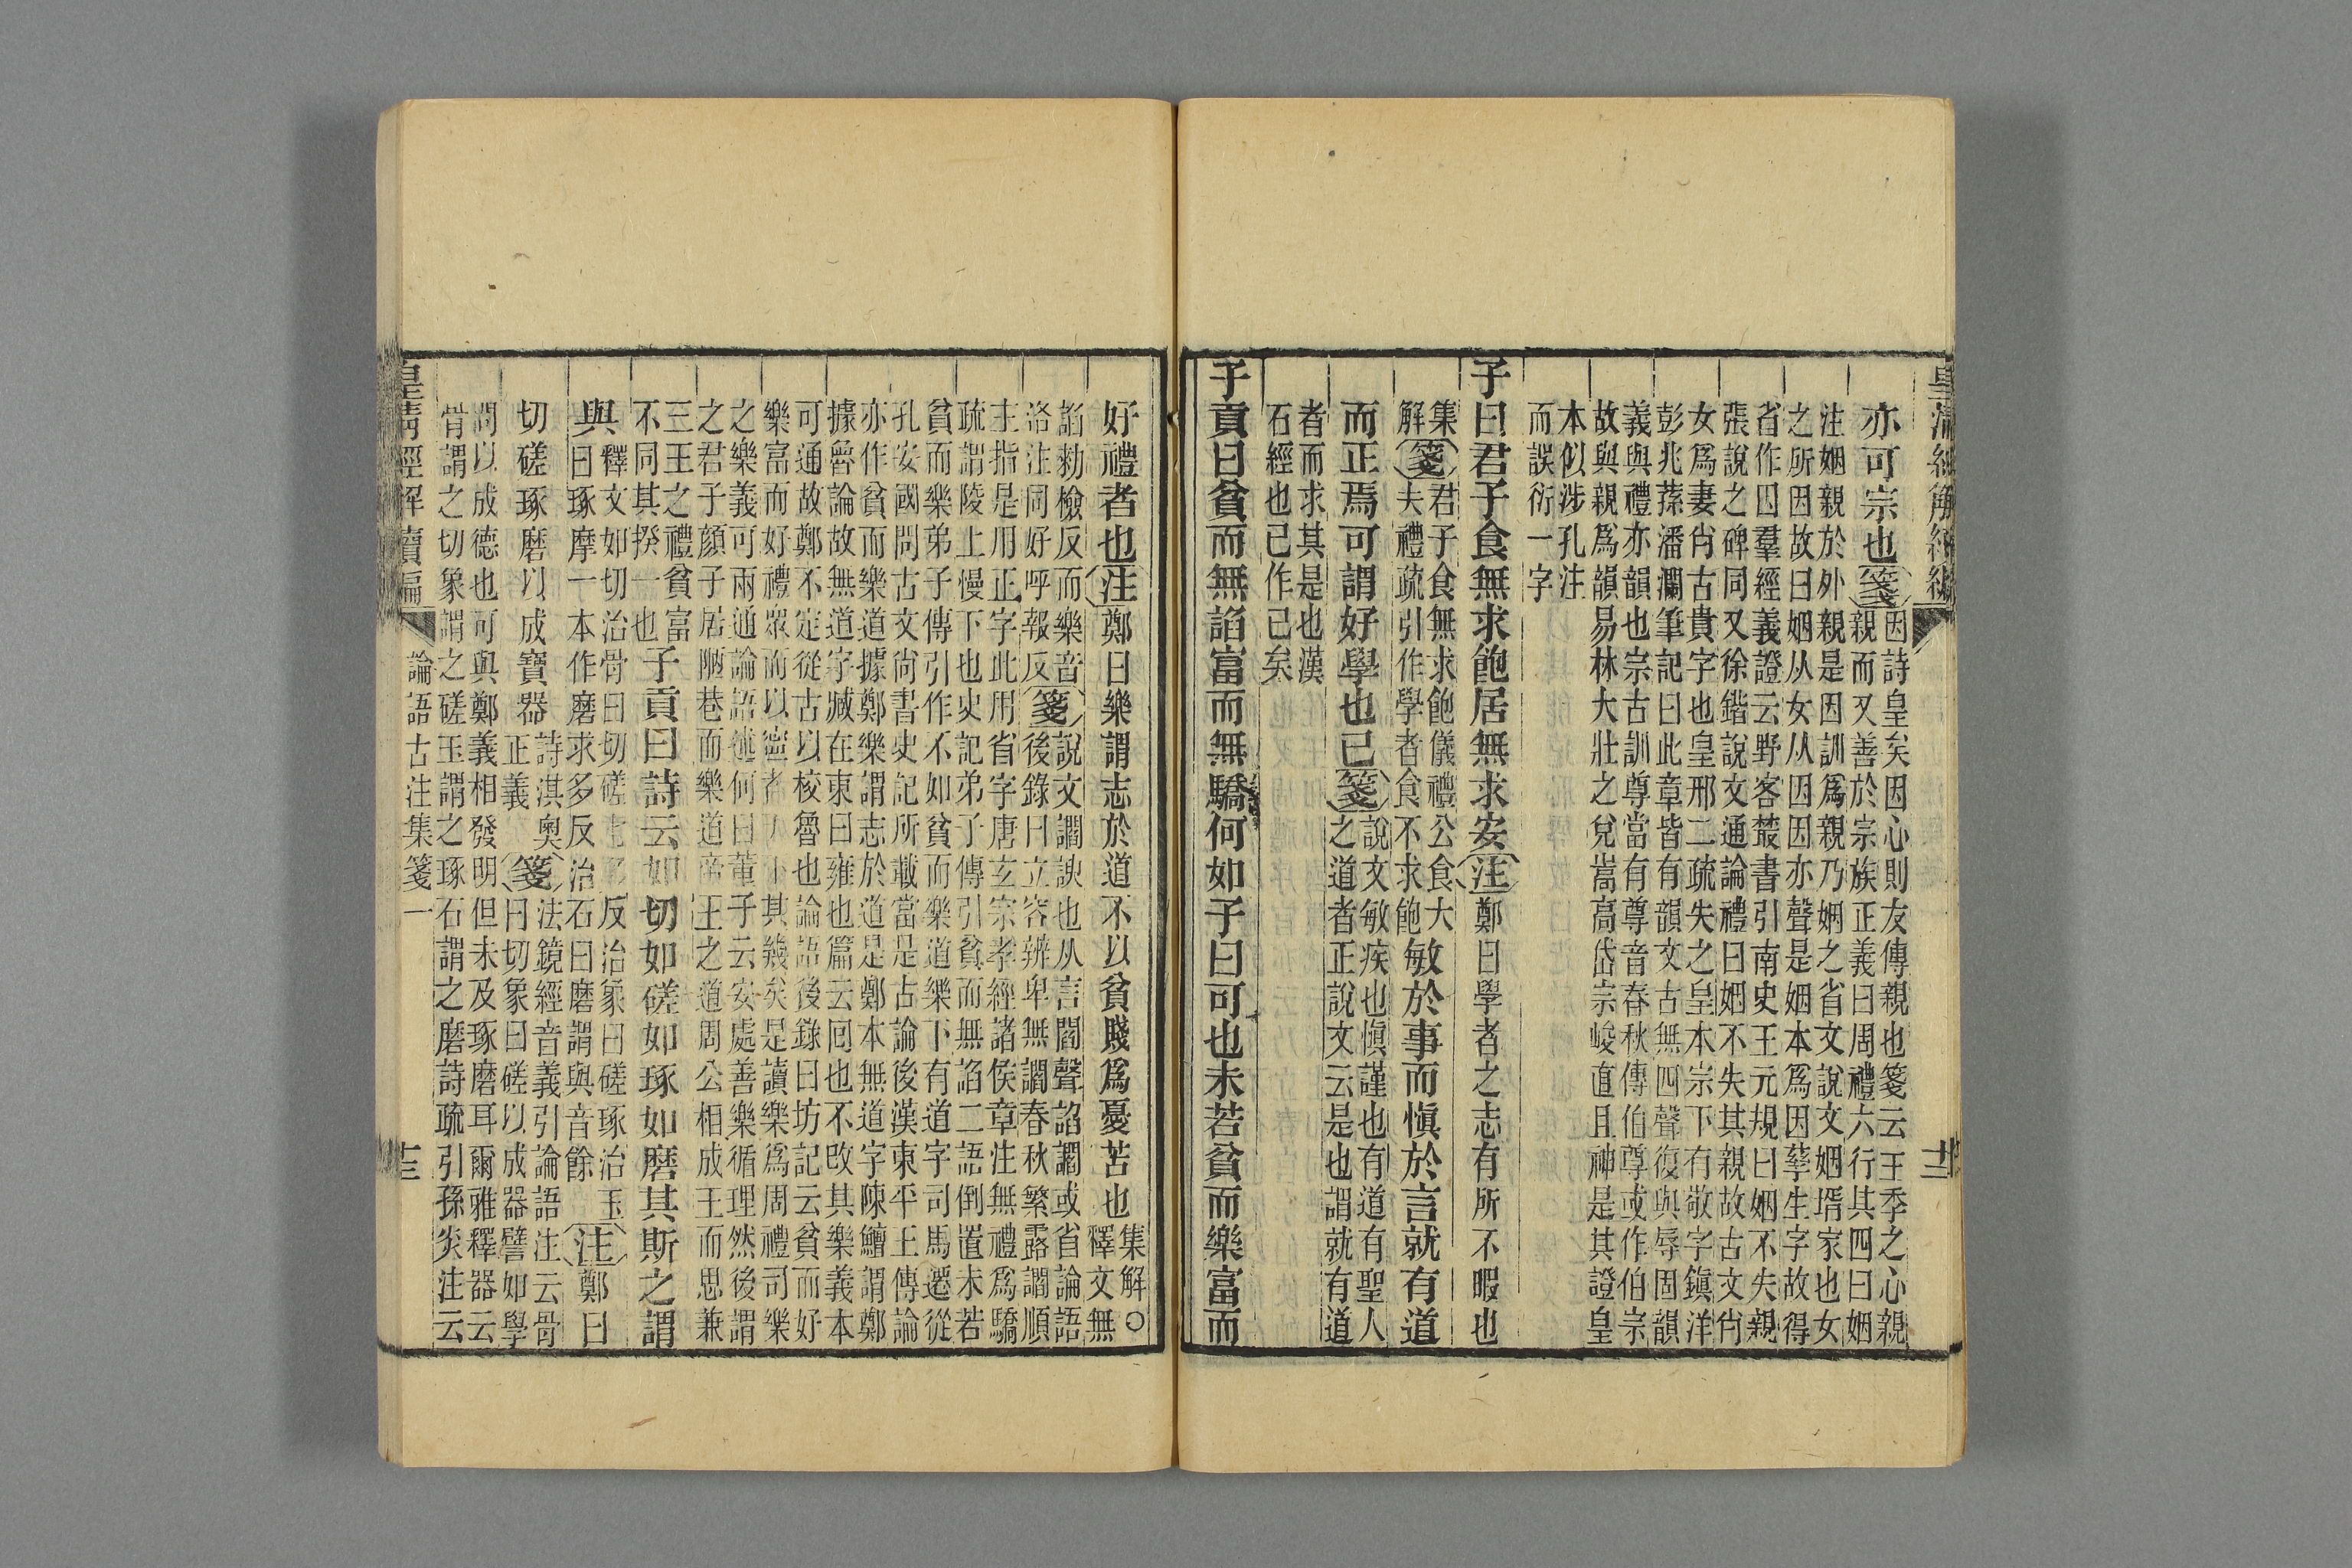 亦可宗也箋因詩皇矣因心則友傳親也箋云王季之心親
親而又善於宗族正義曰周禮六行其四曰姻
注姻親於外親是因訓為親乃姻之省文說文姻壻家也女
之所因故曰姻从女从因因亦聲是姻本為因孳生字故得
省作因羣經義證云野客叢書引南史王元規曰姻不失親
張說之碑同又徐鍇說文通論禮曰姻不失其親故古文肖
女為妻肖古貴字也皇邢二疏失之皇本宗下有敬字鎮洋
彭兆蓀潘瀾筆記曰此章皆有韻文古無四聲復與辱固韻
義與禮亦韻也宗古訓尊當有尊音春秋傳伯尊或作伯宗
故與親為韻易林大壯之兌嵩高岱宗峻直且神是其證皇
本似涉孔注
而誤衍一字
子曰君子食無求飽居無求安注鄭曰學者之志有所不暇也
集解箋君子食無求飽儀禮公食大
夫禮疏引作學者食不求飽敏於事而愼於言就有道
而正焉可謂好學也已箋說文敏疾也愼謹也有道有聖人
之道者正說文云是也謂就有道
者而求其是也漢
石經也已作已矣
子貢曰貧而無諂富而無驕何如子曰可也未若貧而樂富而
好禮者也注鄭曰樂謂志於道不以貧賤為憂苦也集解○
釋文無
諂勑檢反而樂音
洛注同好呼報反箋說文讇諛也从言閻聲諂讇或省論語
後錄曰立容辨卑無讇春秋繁露讇順
主指是用正字此用省字唐玄宗孝經諸侯章注無禮為驕
疏謂陵上慢下也史記弟子傳引貧而無諂二語倒置未若
貧而樂弟子傳引作不如貧而樂道樂下有道字司馬遷從
孔安國問古文尚書史記所載當是古論後漢東平王傳論
亦作貧而樂道據鄭樂謂志於道是鄭本無道字陳鱣謂鄭
據魯論故無道字臧在東曰雍也篇云回也不改其樂義本
可通故鄭不定從古以校魯也論語後錄曰坊記云貧而好
樂富而好禮眾而以寧者其幾矣是讀樂為周禮司樂
之樂義可兩通論語述何曰董子云安處善樂循理然後謂
之君子顏子居陋巷而樂道帝王之道周公相成王而思兼
三王之禮貧富
不同其揆一也子貢曰詩云如切如磋如琢如磨其斯之謂
與釋文如切治骨曰切磋七多反治象曰磋琢治玉
曰琢摩一本作磨求多反治石曰磨謂與音餘注鄭曰
切磋琢磨以成寶器詩淇奧
正義箋法鏡經音義引論語注云骨
曰切象曰磋以成器譬如學
問以成德也可與鄭義相發明但未及琢磨耳爾雅釋器云
骨謂之切象謂之磋玉謂之琢石謂之磨詩疏引孫炎注云
皇清經解續編
論語古注集箋一
十三